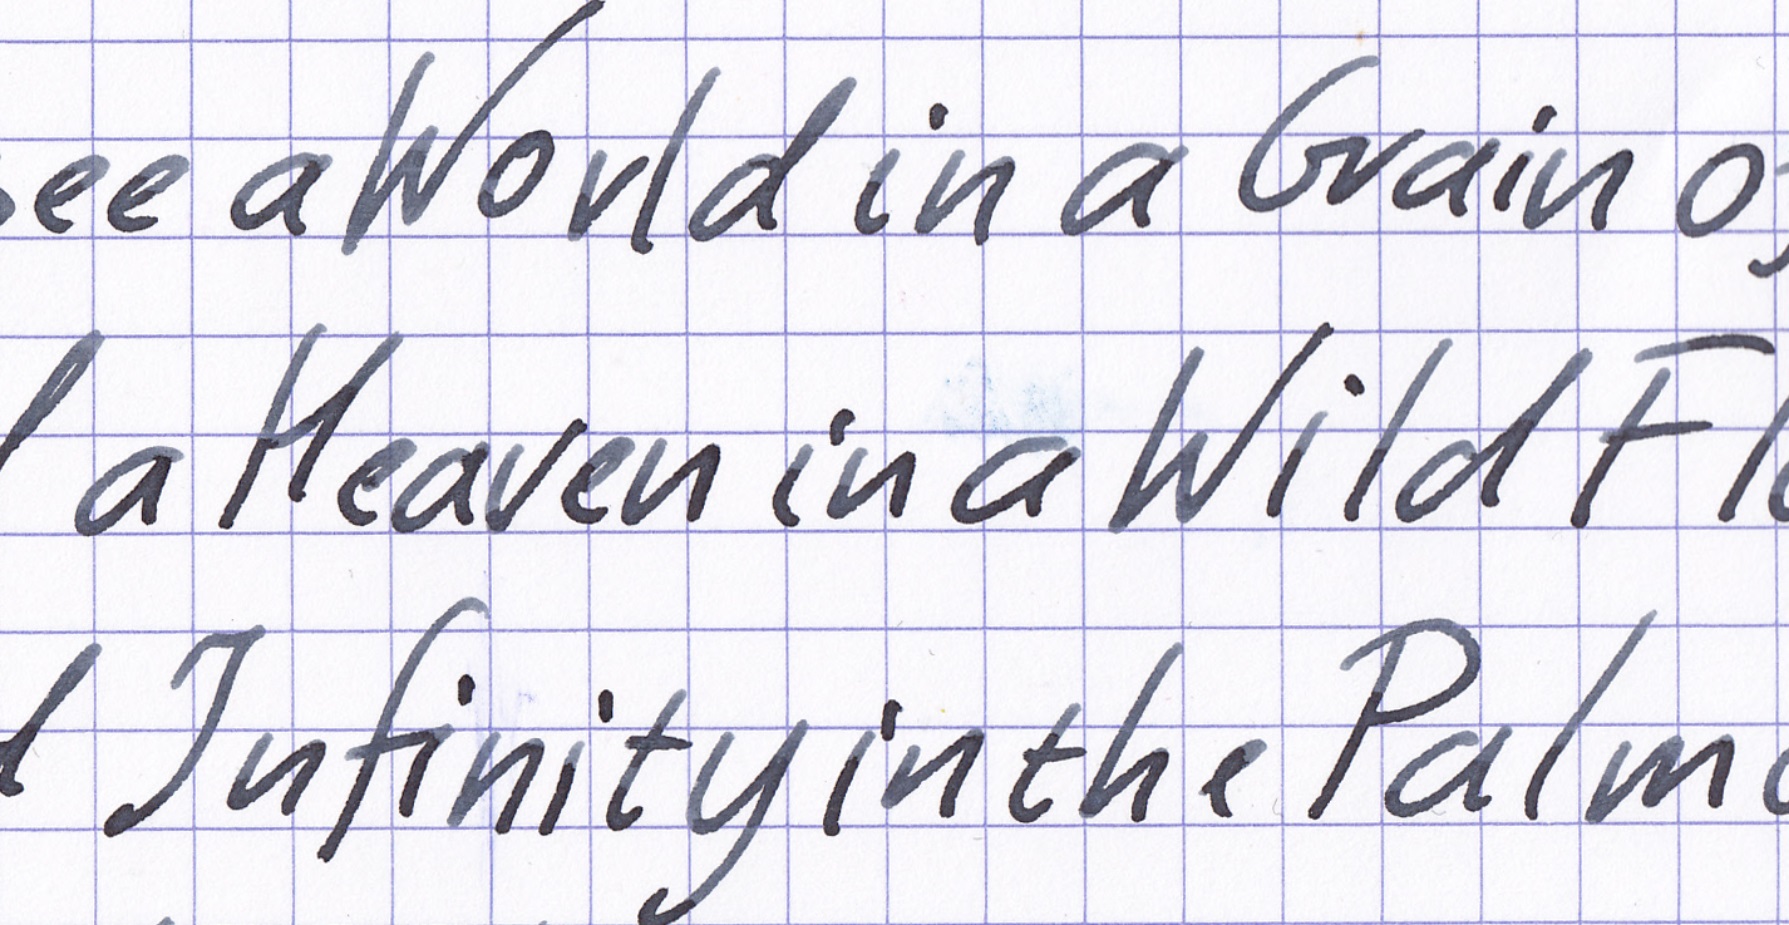 see a World in a Grain o
a Heaven in a Wild Fl
d Infinity in the Palm